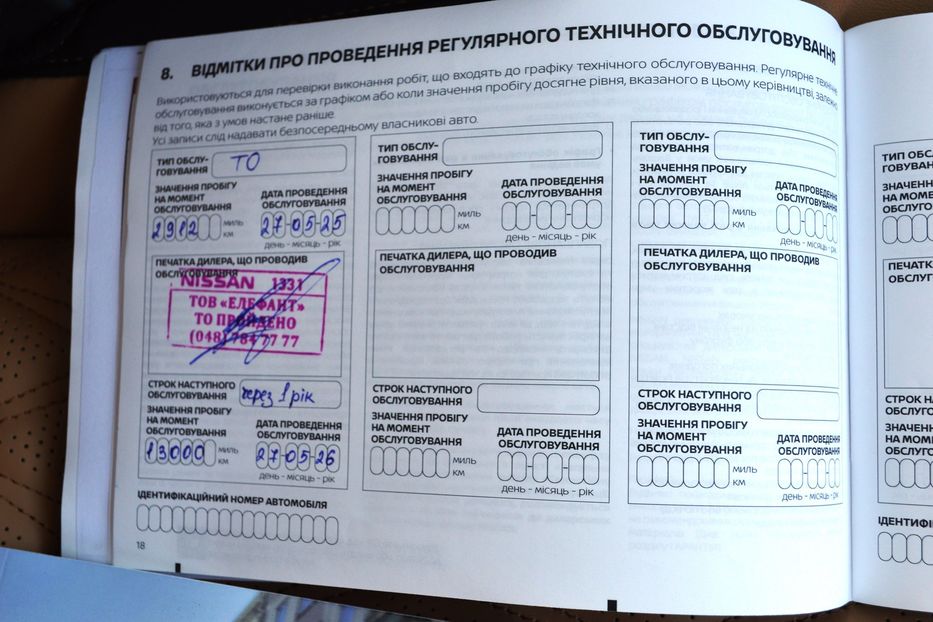 8. ВІДМІТКИ ПРО ПРОВЕДЕННЯ РЕГУЛЯРНОГО ТЕХНІЧНОГО ОБСЛУГОВУВАННЯ
Використовуються для перевірки виконання робіт, що входять до графіку технічного обслуговування. Регулярне технічне
обслуговування виконується за графіком або коли значення пробігу досягне рівня, вказаного в цьому керівництві, залежно
від того, яка з умов настане раніше
Усі записи слід надавати безпосередньому власникові авто.
ТИП ОБСЛУ-
ГОВУВАННЯ
ТО
ЗНАЧЕННЯ ПРОБІГУ
НА МОМЕНТ
ОБСЛУГОВУВАННЯ
2912
МИЛЬ
КМ
ДАТА ПРОВЕДЕННЯ
ОБСЛУГОВУВАННЯ
27-05-25
день - місяць - рік
ПЕЧАТКА ДИЛЕРА, ЩО ПРОВОДИВ
ОБСЛУГОВУВАННЯ
NISSAN 1331
ТОВ «ЕЛЕФАНТ»
ТО ПРОЙДЕНО
(048) 784 77 77
СТРОК НАСТУПНОГО
ОБСЛУГОВУВАННЯ
через 1 рік
ЗНАЧЕННЯ ПРОБІГУ
НА МОМЕНТ
ОБСЛУГОВУВАННЯ
13000
МИЛЬ
КМ
ДАТА ПРОВЕДЕННЯ
ОБСЛУГОВУВАННЯ
27-05-26
день - місяць - рік
ІДЕНТИФІКАЦІЙНИЙ НОМЕР АВТОМОБІЛЯ
18
ТИП ОБСЛУ-
ГОВУВАННЯ
ЗНАЧЕННЯ ПРОБІГУ
НА МОМЕНТ
ОБСЛУГОВУВАННЯ
МИЛЬ
КМ
ДАТА ПРОВЕДЕННЯ
ОБСЛУГОВУВАННЯ
день - місяць - рік
ПЕЧАТКА ДИЛЕРА, ЩО ПРОВОДИВ
ОБСЛУГОВУВАННЯ
СТРОК НАСТУПНОГО
ОБСЛУГОВУВАННЯ
ЗНАЧЕННЯ ПРОБІГУ
НА МОМЕНТ
ОБСЛУГОВУВАННЯ
МИЛЬ
КМ
ДАТА ПРОВЕДЕННЯ
ОБСЛУГОВУВАННЯ
день - місяць - рік
ТИП ОБСЛУ-
ГОВУВАННЯ
ЗНАЧЕННЯ ПРОБІГУ
НА МОМЕНТ
ОБСЛУГОВУВАННЯ
МИЛЬ
КМ
ДАТА ПРОВЕДЕНН
ОБСЛУГОВУВАНН
день - місяць - рік
ПЕЧАТКА ДИЛЕРА, ЩО ПРОВОДИВ
ОБСЛУГОВУВАННЯ
СТРОК НАСТУПНОГО
ОБСЛУГОВУВАННЯ
ЗНАЧЕННЯ ПРОБІГУ
НА МОМЕНТ
ОБСЛУГОВУВАННЯ
МИЛЬ
КМ
ДАТА ПРОВЕДЕНН
ОБСЛУГОВУВАНН
день - місяць - рік